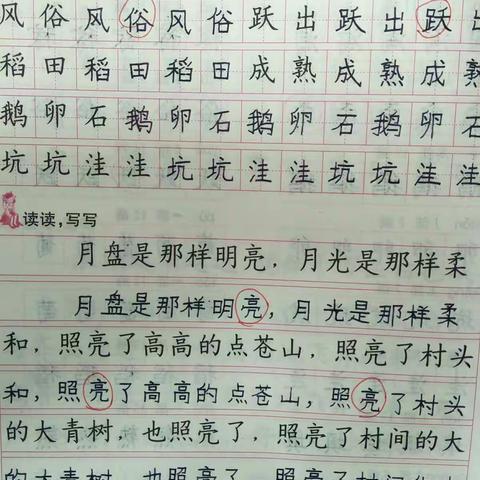 风俗风俗风俗跃出跃出跃出
稻田稻田稻田成熟成熟成熟
鹅卵石鹅卵石鹅卵石鹅卵石
坑坑洼洼坑坑洼洼坑坑洼洼
读读,写写
月盘是那样明亮，月光是那样柔
月盘是那样明亮，月光是那样柔
和，照亮了高高的点苍山，照亮了村头
和，照亮了高高的点苍山，照亮了村头
的大青树，也照亮了，照亮了村间的大
的大青树，也照亮了，照亮了村间的大